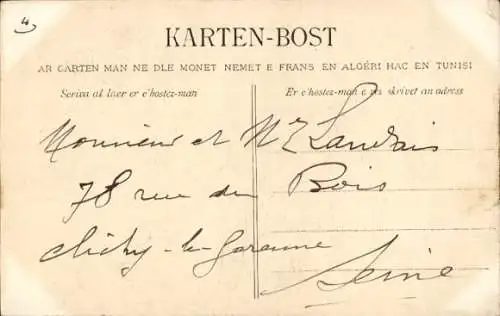 4
KARTEN-BOST
AR GARTEN MAN NE DLE MONET NEMET E FRANS EN ALGÉRI HAC EN TUNISI
Scriva al laer er c'hostez-man
Er c'hostez-man e vis skrivet an adress
Monsieur et Me Landais
78 rue du Bois
Clichy-la-Garenne
Seine